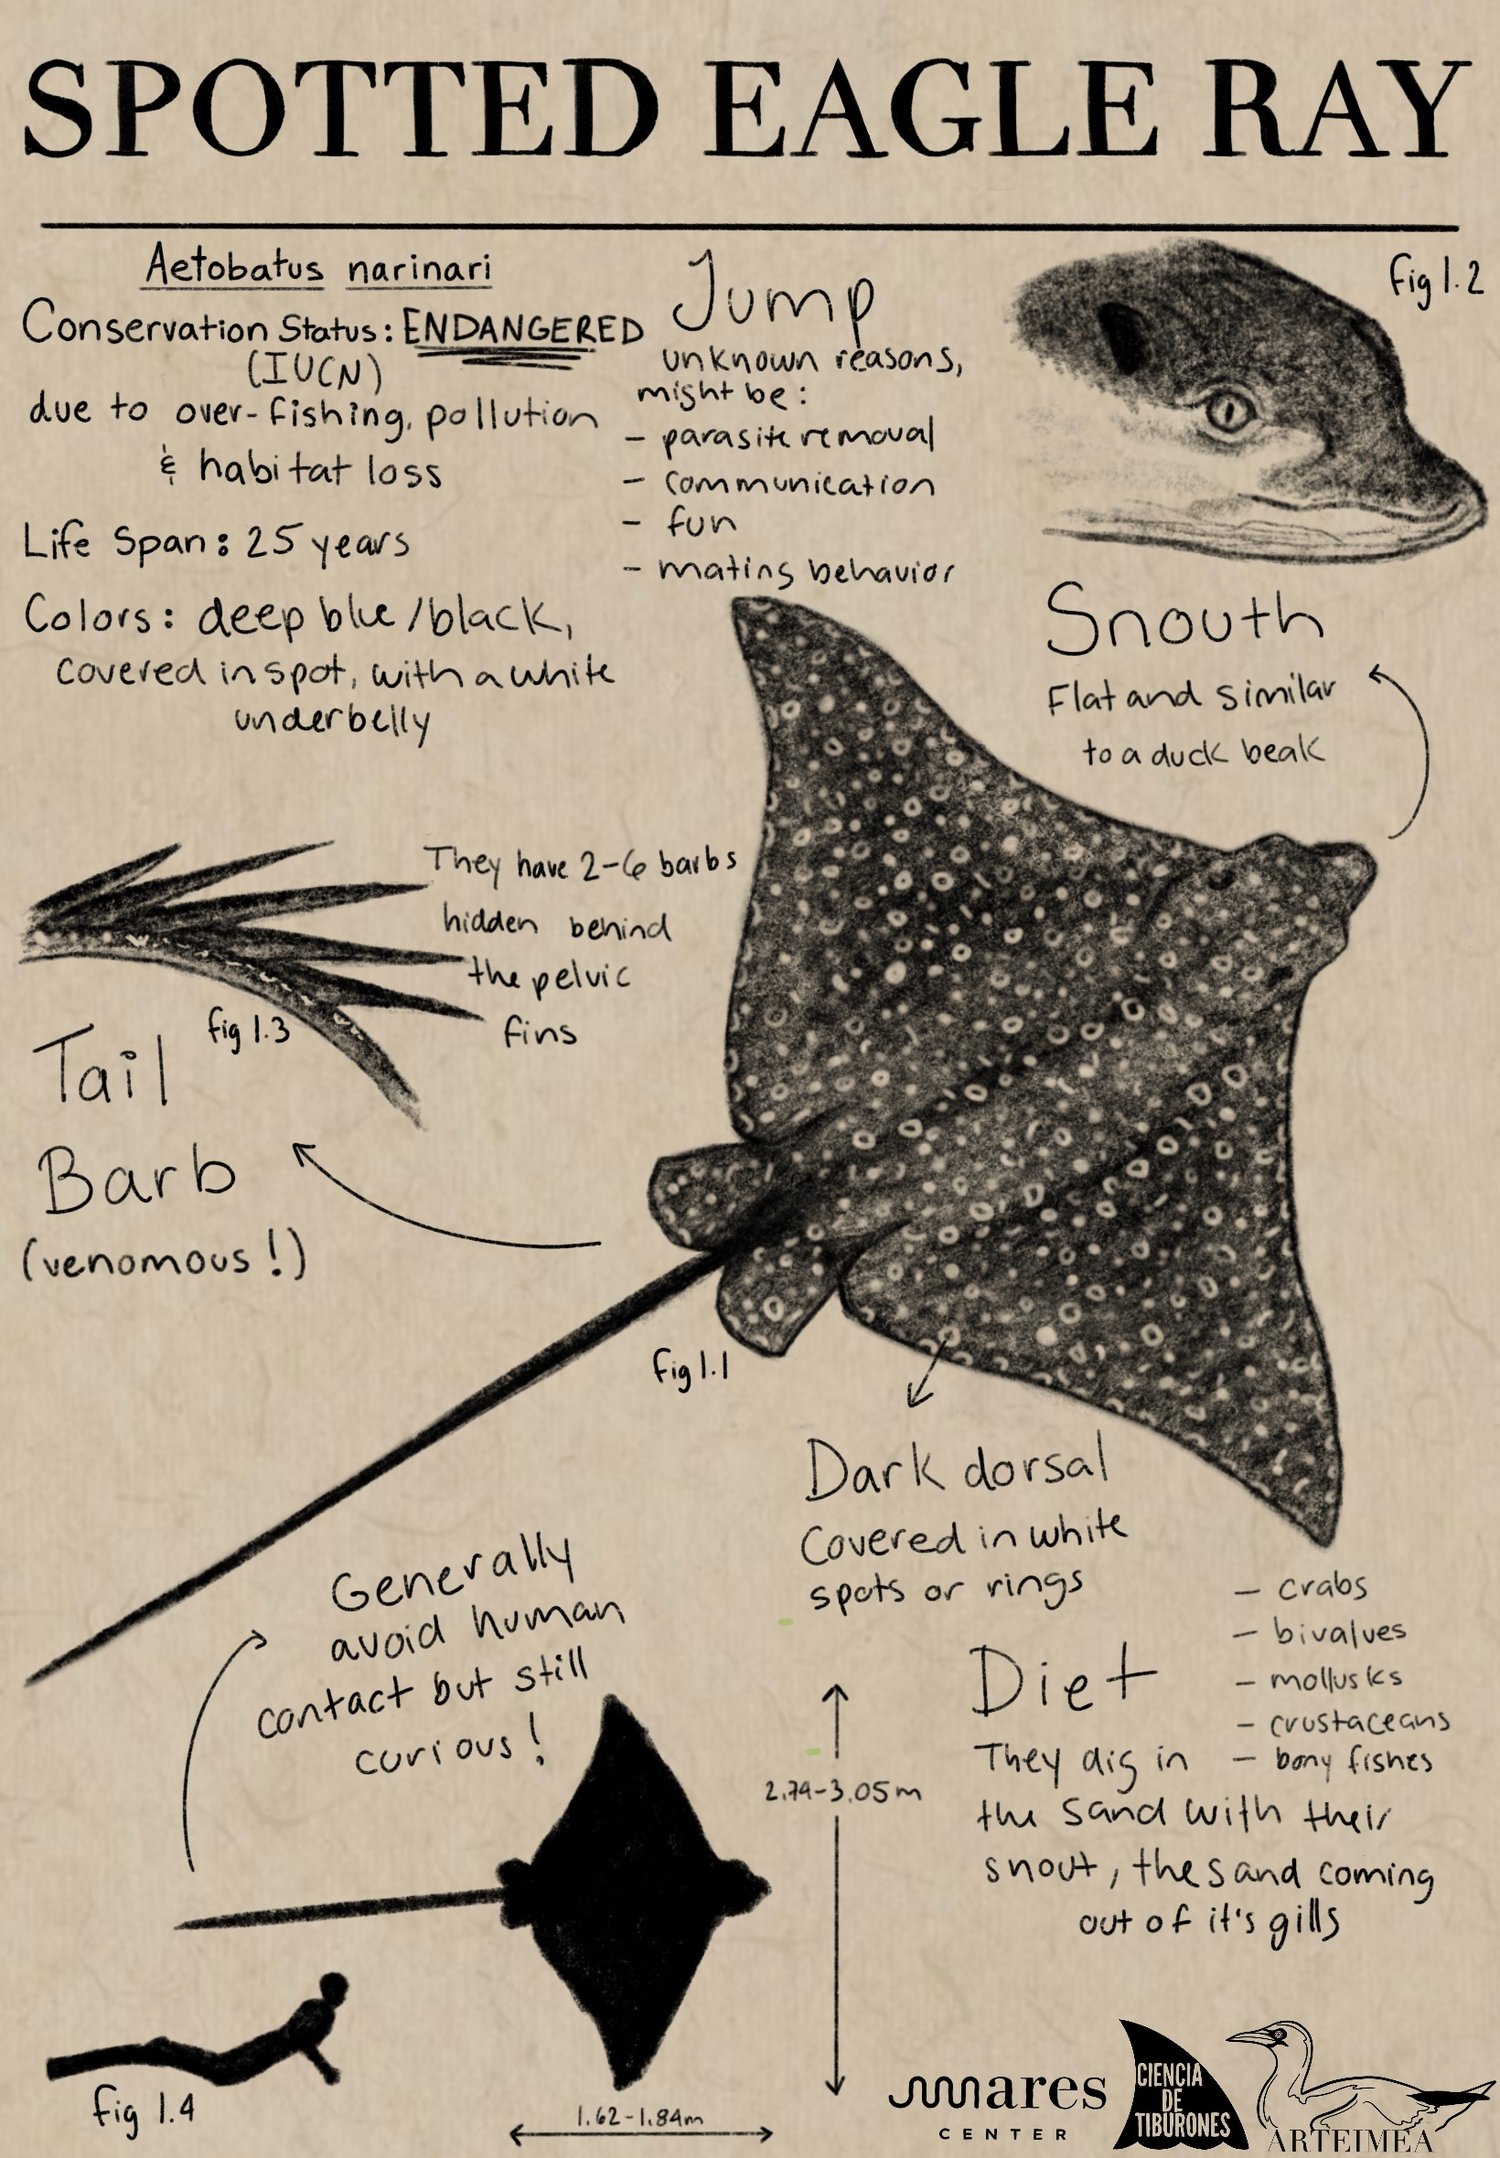 SPOTTED EAGLE RAY
Aetobatus narinari
Conservation Status: ENDANGERED
(IUCN)
due to over-fishing, pollution
& habitat loss
Life Span: 25 years
Colors: deep blue/black,
covered in spot, with a white
underbelly
Jump
unknown reasons,
might be:
- parasite removal
- communication
- fun
- mating behavior
fig 1.2
Snouth
Flat and similar
to a duck beak
They have 2-6 barbs
hidden behind
the pelvic
fins
fig 1.3
Tail
Barb
(venomous!)
fig 1.1
Dark dorsal
Covered in white
spots or rings
Generally
avoid human
contact but still
curious!
Diet
- crabs
- bivalves
- mollusks
- crustaceans
- bony fishes
They dig in
the sand with their
snout, the sand coming
out of it's gills
2.74-3.05m
1.62-1.84m
fig 1.4
mares
CENTER
CIENCIA
DE
TIBURONES
ARTEIMEA